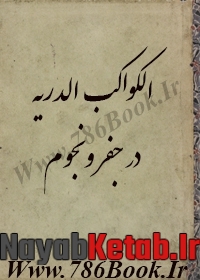 الكواكب الدريه
www.786Book.Ir
در جفر و نجوم
NayabKetab.Ir
www.786Book.Ir